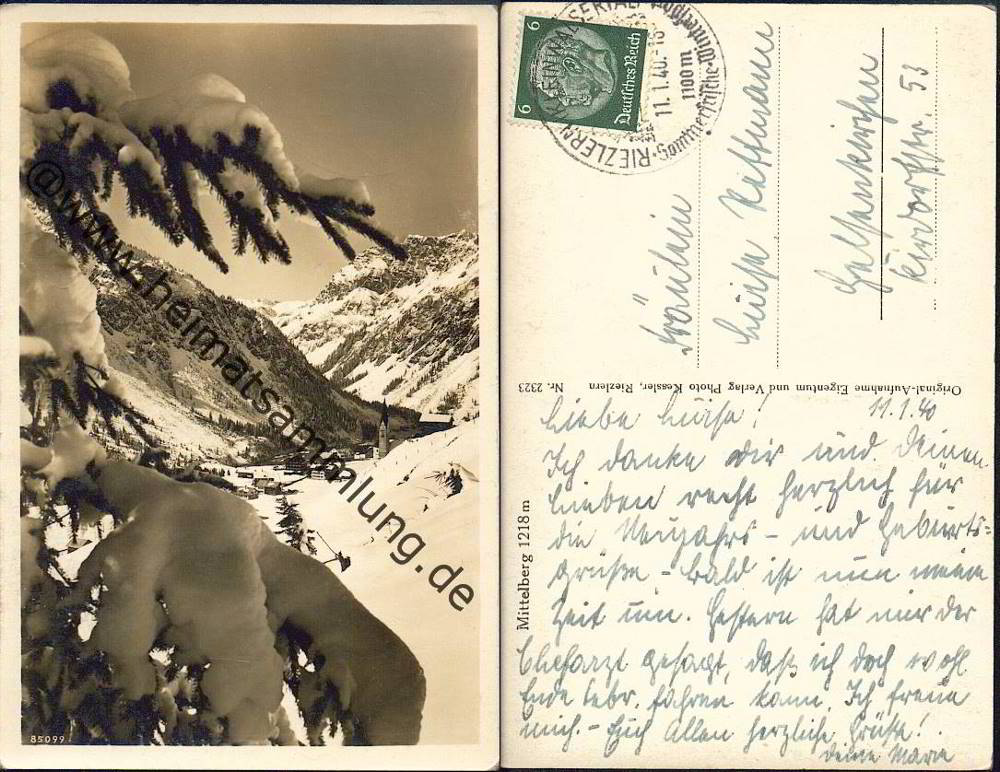 @www.heimatsammlung.de
85099
KLEINWALSERTAL
RIEZLERN
11.1.40.-18
1100 m
Sommerfrische-Wintersport
6 6
Deutsches Reich
Fräulein
Luise
Gelsenkirchen
Kirchstr. 53
Original-Aufnahme Eigentum und Verlag Photo Kessler, Riezlern Nr. 2323
Mittelberg 1218 m
Liebe Luise! 11.1.40
Ich danke Dir und Deinen
Lieben recht herzlich für
die Neujahrs- und Geburts-
grüße - Bald ist nun meine
Zeit um. Gestern hat mir der
Chefarzt gesagt, daß ich doch wohl
Ende Febr. fahren kann. Ich freue
mich. - Euch Allen herzliche Grüße!
Deine Maria